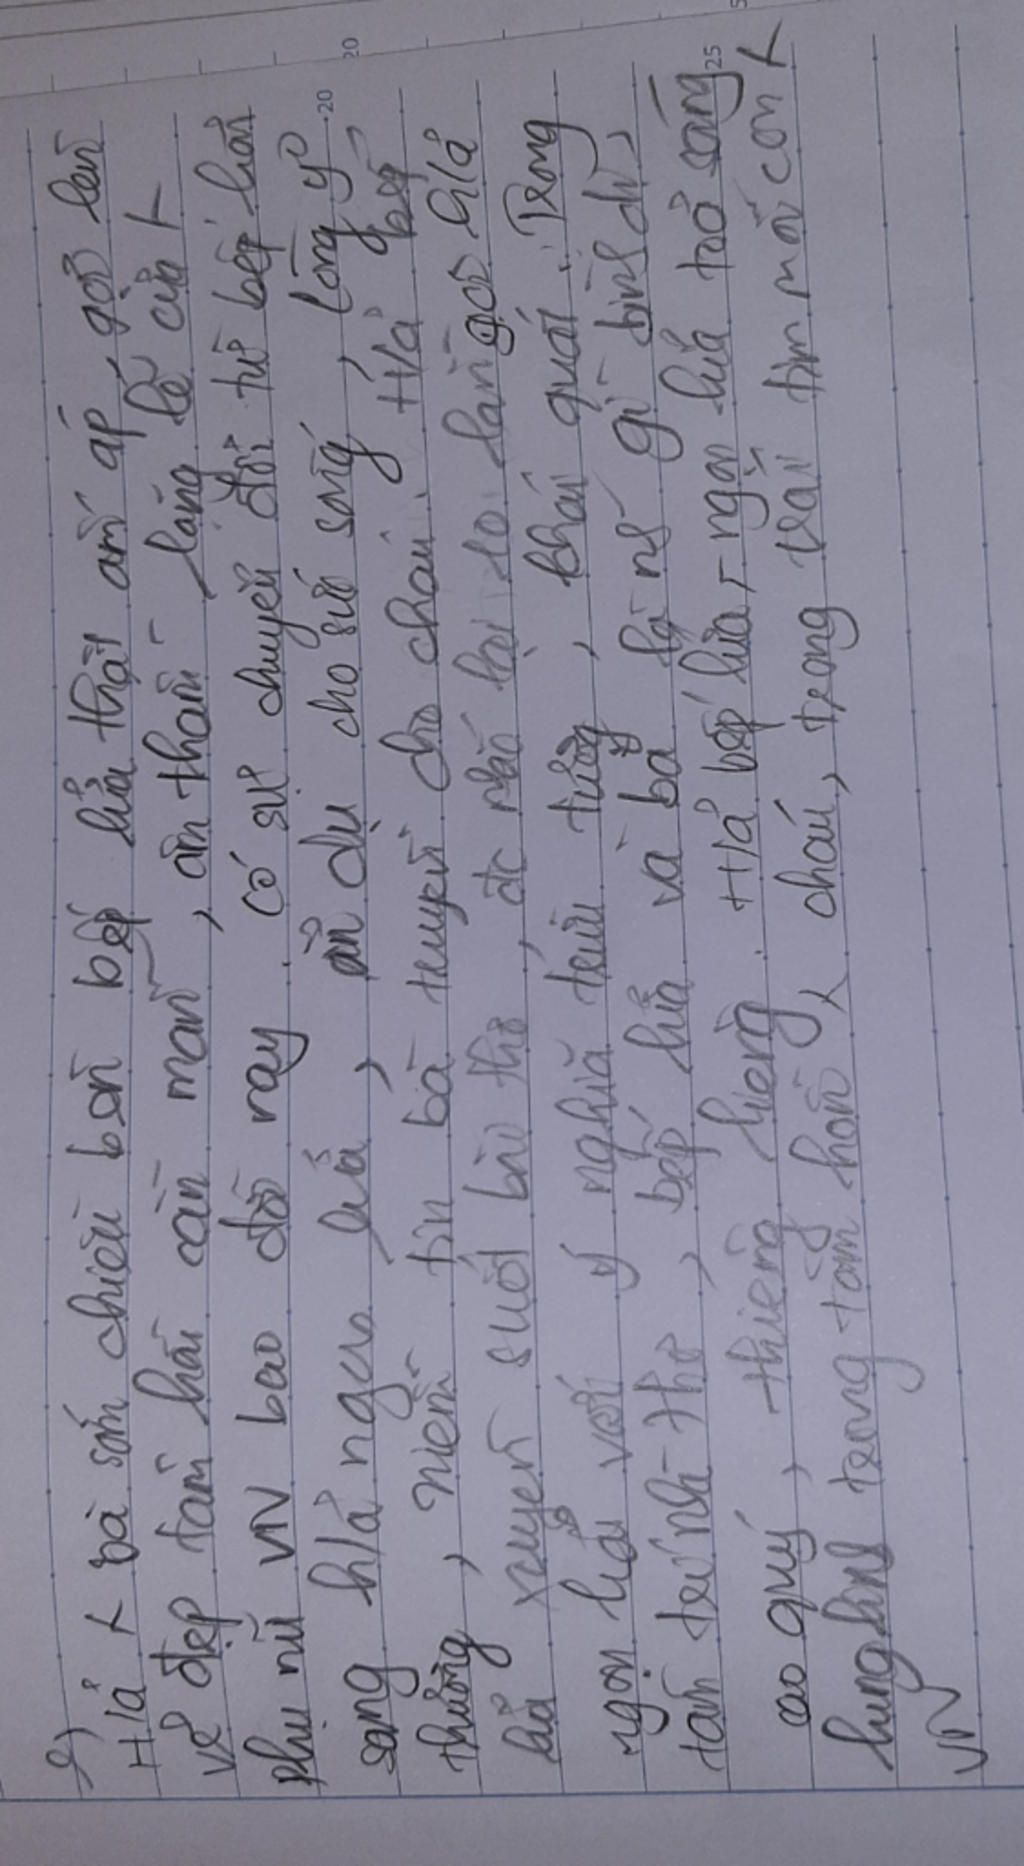 H/ả λ bà sớm chiều bên bếp lửa thật ấm áp, gợi lên
vẻ đẹp tâm hồn cần mẫn, âm thầm - lặng lẽ của λ
phụ nữ VN bao đời nay. Có sự chuyển đổi từ bếp lửa
sang h/ả ngọn lửa, ẩn dụ cho sức sống, lòng yêu
thương, niềm tin bà truyền cho cháu. H/ả bếp
lửa xuyên suốt bài thơ, đc nhắc lại 10 lần gợi h/ả
ngọn lửa với ý nghĩa trừu tượng, khái quát. Trong
tâm trí nhà thơ, bếp lửa và bà là n~ gì bình dị,
cao quý, thiêng liêng. H/ả bếp lửa, ngọn lửa toả sáng
lung linh trong tâm hồn λ cháu, trong trái tim mỗi con λ
VN
20
20
25